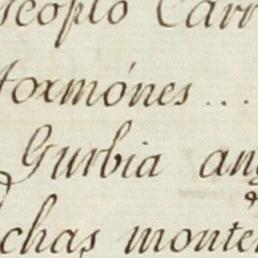 scopio Carr
tormónes ...
Gurbia ang
chas monter